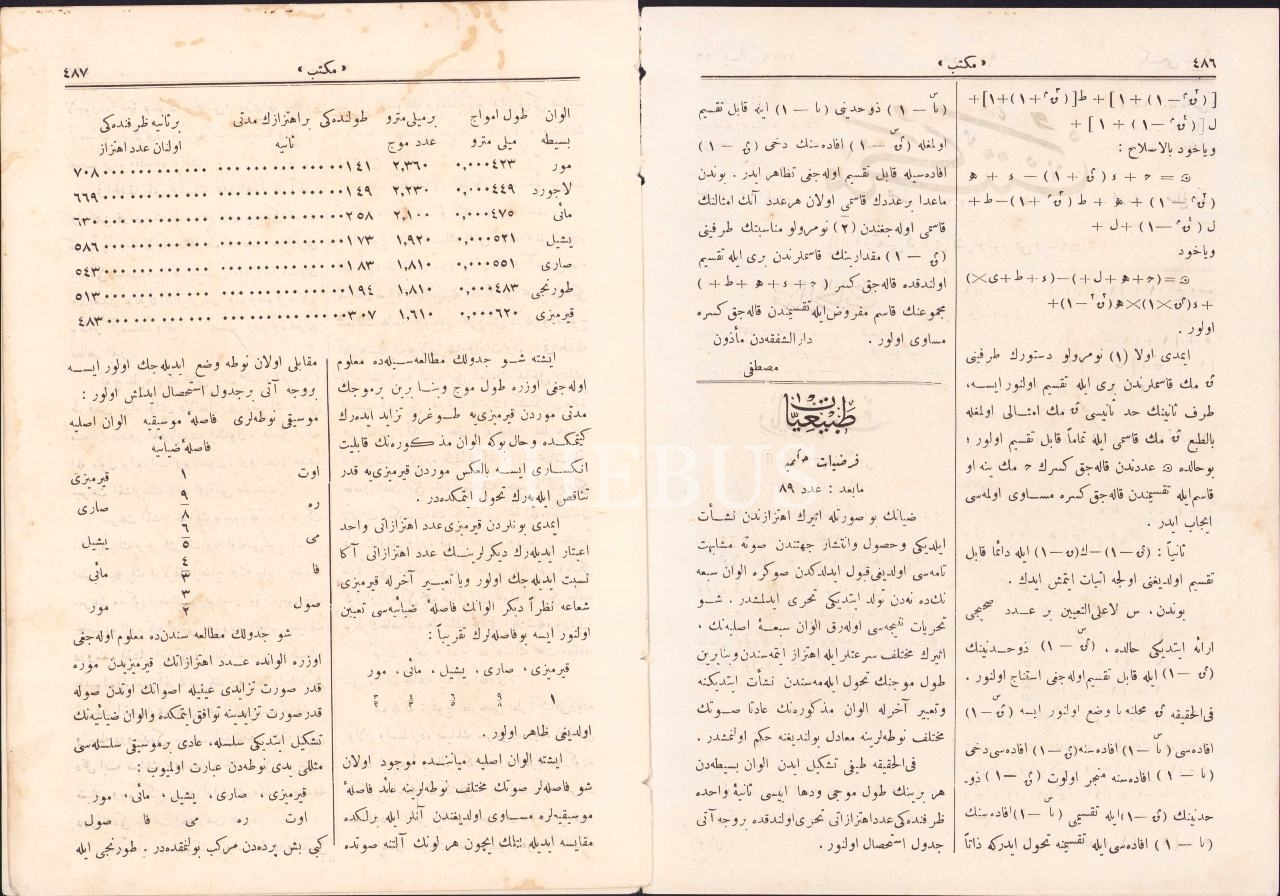 ٤٨٦
« مكتب »
[(ق^٢ — ١) + ١] + ط[(ق^٢ + ١) + ١] +
ل [(ق^٢ — ١) + ١] +
وياخود بالاصلاح :
(ق^٢ — ١) + ھ + ط (ق^٢ + ١) — ط +
ل (ق^٢ — ١) + ل +
وياخود
اولور .
ايمدى اولا (١) نومرولو دستورك طرفينى
ق مك قاسملرندن برى ايله تقسيم اولنور ايسه،
طرف ثانينك حد ثانيسى ق مك امثالى اولمغله
بالطبع ق مك قاسمى ايله تماماً قابل تقسيم اولور ؛
بوحالده عددندن قاله‌جق كسرك مك ينه او
قاسم ايله تقسيمندن قاله‌جق كسره مساوى اولمه‌سى
ايجاب ايدر .
ثانياً : (ق — ١) — ك (ق — ١) ايله دائما قابل
تقسيم اولديغى اولجه اثبات ايتمش ايدك .
بوندن ، س لاعلى التعيين بر عدد صحيحى
ارائه ايتديكى حالده ، (ق^س — ١) ذوحدينك
(ق — ١) ايله قابل تقسيم اوله‌جغى استنتاج اولنور .
فى الحقيقه ق محلنه نا وضع اولنور ايسه (ق^س — ١)
افاده‌سى (نا^س — ١) افاده‌سنه (ق — ١) افاده‌سى دخى
(نا — ١) افاده‌سنه منجر اولوب (ق^س — ١) ذو-
حدينك (ق — ١) ايله تقسيمى (نا^س — ١) افاده‌سنك
(نا — ١) افاده‌سى ايله تقسيمنه تحول ايدركه ذاتاً
(نا^س — ١) ذوحدينى (نا — ١) ايله قابل تقسيم
اولمغله (ق^س — ١) افاده‌سنك دخى (ق — ١)
افاده‌سيله قابل تقسيم اوله‌جغى تظاهر ايدر . بوندن
ماعدا بر عددك قاسمى اولان هر عدد آنك امثالنك
قاسمى اوله‌جغندن (٢) نومرولو مناسبتك طرفينى
(ق — ١) مقدارينك قاسملرندن برى ايله تقسيم
اولندقده قاله‌جق كسر
مجموعنك قاسم مفروض ايله تقسيمندن قاله‌جق كسره
مساوى اولور . دار الشفقه‌دن مأذون
مصطفى
طبيعيات
فرضيات حكميه
مابعد : عدد ٨٩
ضيانك بو صورتله اثيرك اهتزازندن نشأت
ايلديكى وحصول وانتشار جهتندن صوته مشابهت
تامه‌سى اولديغى قبول ايدلدكدن صوكره الوان سبعه
نك ده نه‌دن تولد ايتديكى تحرى ايدلمشدر . شو
تحريات نتيجه‌سى اوله‌رق الوان سبعهٔ اصليه‌نك ،
اثيرك مختلف سرعتلر ايله اهتزاز ايتمه‌سندن وبنابرين
طول موجنك تحول ايله‌مه‌سندن نشأت ايتديكنه
وتعبير آخرله الوان مذكوره‌نك عادتا صوتك
مختلف نوطه‌لرينه معادل بولنديغنه حكم اولنمشدر .
فى الحقيقه طيفى تشكيل ايدن الوان بسيطه‌دن
هر برينك طول موجى ودها ايسى ثانيهٔ واحده
ظرفنده‌كى عدد اهتزازاتى تحرى اولندقده بروجه آتى
جدول استحصال اولنور .
« مكتب »
٤٨٧
الوان طول امواج بر ميلى مترو طولنده‌كى بر اهتزازك مدتى بر ثانيه ظرفنده‌كى
بسيطه ميلى مترو عدد موج ثانيه اولنان عدد اهتزاز
مور ٠,٠٠٠٤٢٣ ٢,٣٦٠ ١٤١ ٧٠٨
لاجورد ٠,٠٠٠٤٤٩ ٢,٢٣٠ ١٤٩ ٦٦٩
مائى ٠,٠٠٠٤٧٥ ٢,١٠٠ ٢٥٨ ٦٣٠
يشيل ٠,٠٠٠٥٢١ ١,٩٢٠ ١٧٣ ٥٨٦
صارى ٠,٠٠٠٥٥١ ١,٨١٠ ١٨٣ ٥٤٣
طورنجى ٠,٠٠٠٤٨٣ ١,٨١٠ ١٩٤ ٥١٣
قيرمزى ٠,٠٠٠٦٢٠ ١,٦١٠ ٣٠٧ ٤٨٣
ايشته شو جدولك مطالعه‌سيله‌ده معلوم
اوله‌جغى اوزره طول موج وبنابرين بر موجك
مدتى موردن قيرمزى‌يه طوغرو تزايد ايده‌رك
كيتمكده وحال بوكه الوان مذكوره‌نك قابليت
انكسارى ايسه بالعكس موردن قيرمزى‌يه قدر
تناقص ايله‌يه‌رك تحول ايتمكده‌در .
ايمدى بونلردن قيرمزى عدد اهتزازاتى واحد
اعتبار ايديله‌رك ديكرلرينك عدد اهتزازاتى آكا
نسبت ايديله‌جك اولور ويا تعبير آخرله قيرمزى
شعاعه نظراً ديكر الوانك فاصلهٔ ضيائيه‌سى تعيين
اولنور ايسه بو فاصله‌لرك تقريباً :
قيرمزى ، صارى ، يشيل ، مائى ، مور
اولديغى ظاهر اولور .
ايشته الوان اصليه ميانننده موجود اولان
شو فاصله‌لر صوتك مختلف نوطه‌لرينه عائد فاصلهٔ
موسيقيه‌لره مساوى اولديغندن آنلر ايله برلكده
مقايسه ايديله بيلمك ايچون هر لونك آلتنه صوتده
مقابلى اولان نوطه وضع ايديله‌جك اولور ايسه
بروجه آتى بر جدول استحصال ايدلمش اولور :
موسيقى نوطه‌لرى فاصلهٔ موسيقيه الوان اصليه
فاصلهٔ ضيائيه
اوت ١ قيرمزى
ره ٩/٨ صارى
مى ٦/٥ يشيل
فا ٤/٣ مائى
صول ٣/٢ مور
شو جدولك مطالعه سندن‌ده معلوم اوله‌جغى
اوزره الوانده عدد اهتزازاتك قيرمزيدن موره
قدر صورت تزايدى عينيله اصواتك اوتدن صوله
قدر صورت تزايدينه توافق ايتمكده والوان ضيائيه‌نك
تشكيل ايتديكى سلسله، عادى بر موسيقى سلسله‌سى
مثللى يدى نوطه‌دن عبارت اولميوب :
قيرمزى ، صارى ، يشيل ، مائى ، مور
اوت ره مى فا صول
كبى بش پرده‌دن مركب بولنمقده‌در . طورنجى ايله
PHEBUS